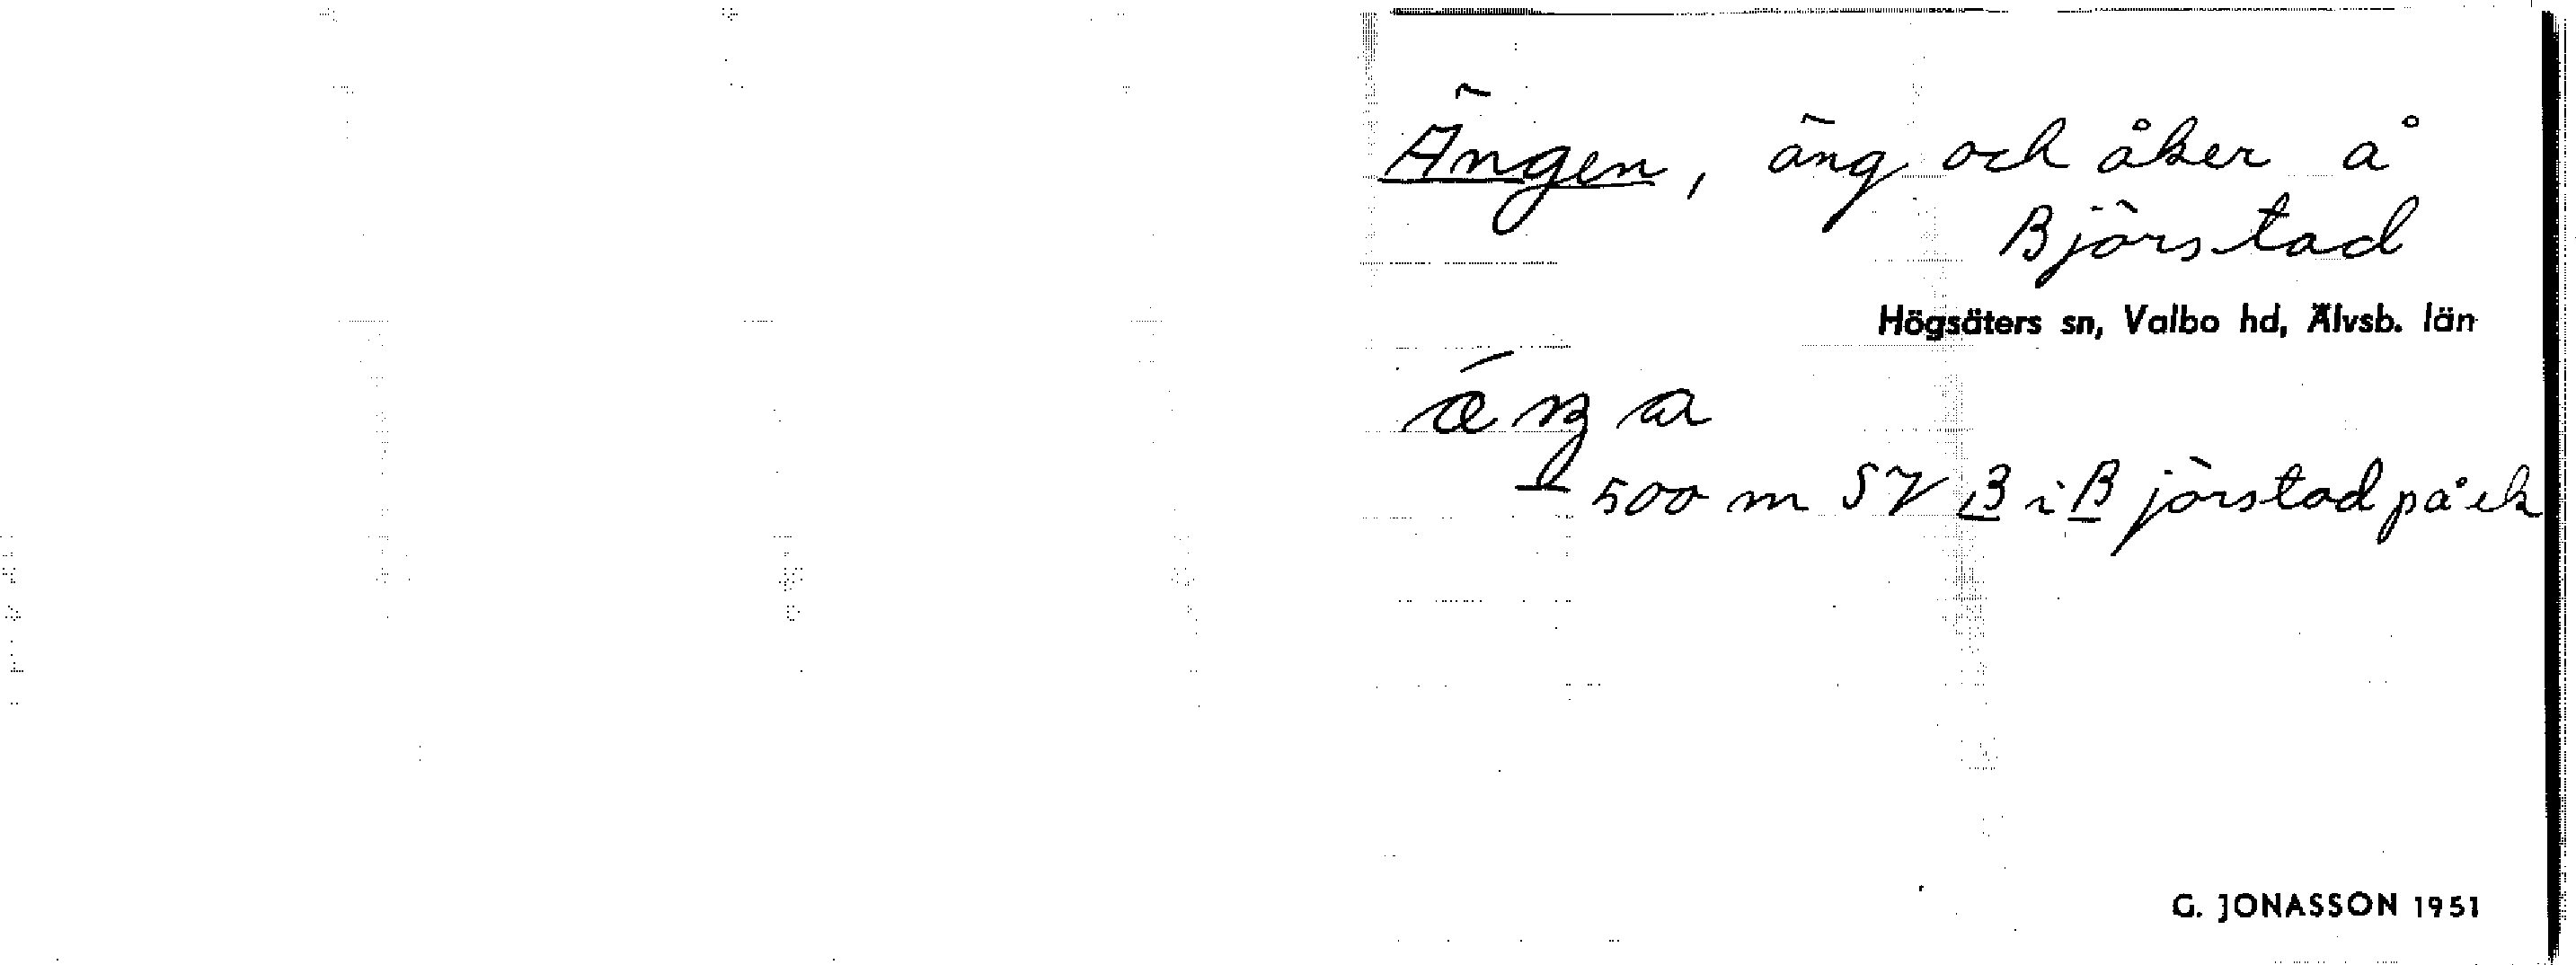 Ängen, äng och åker å
Björstad
Högsäters sn, Valbo hd, Älvsb. län
500 m SV B i Björstad på ek
G. JONASSON 1951